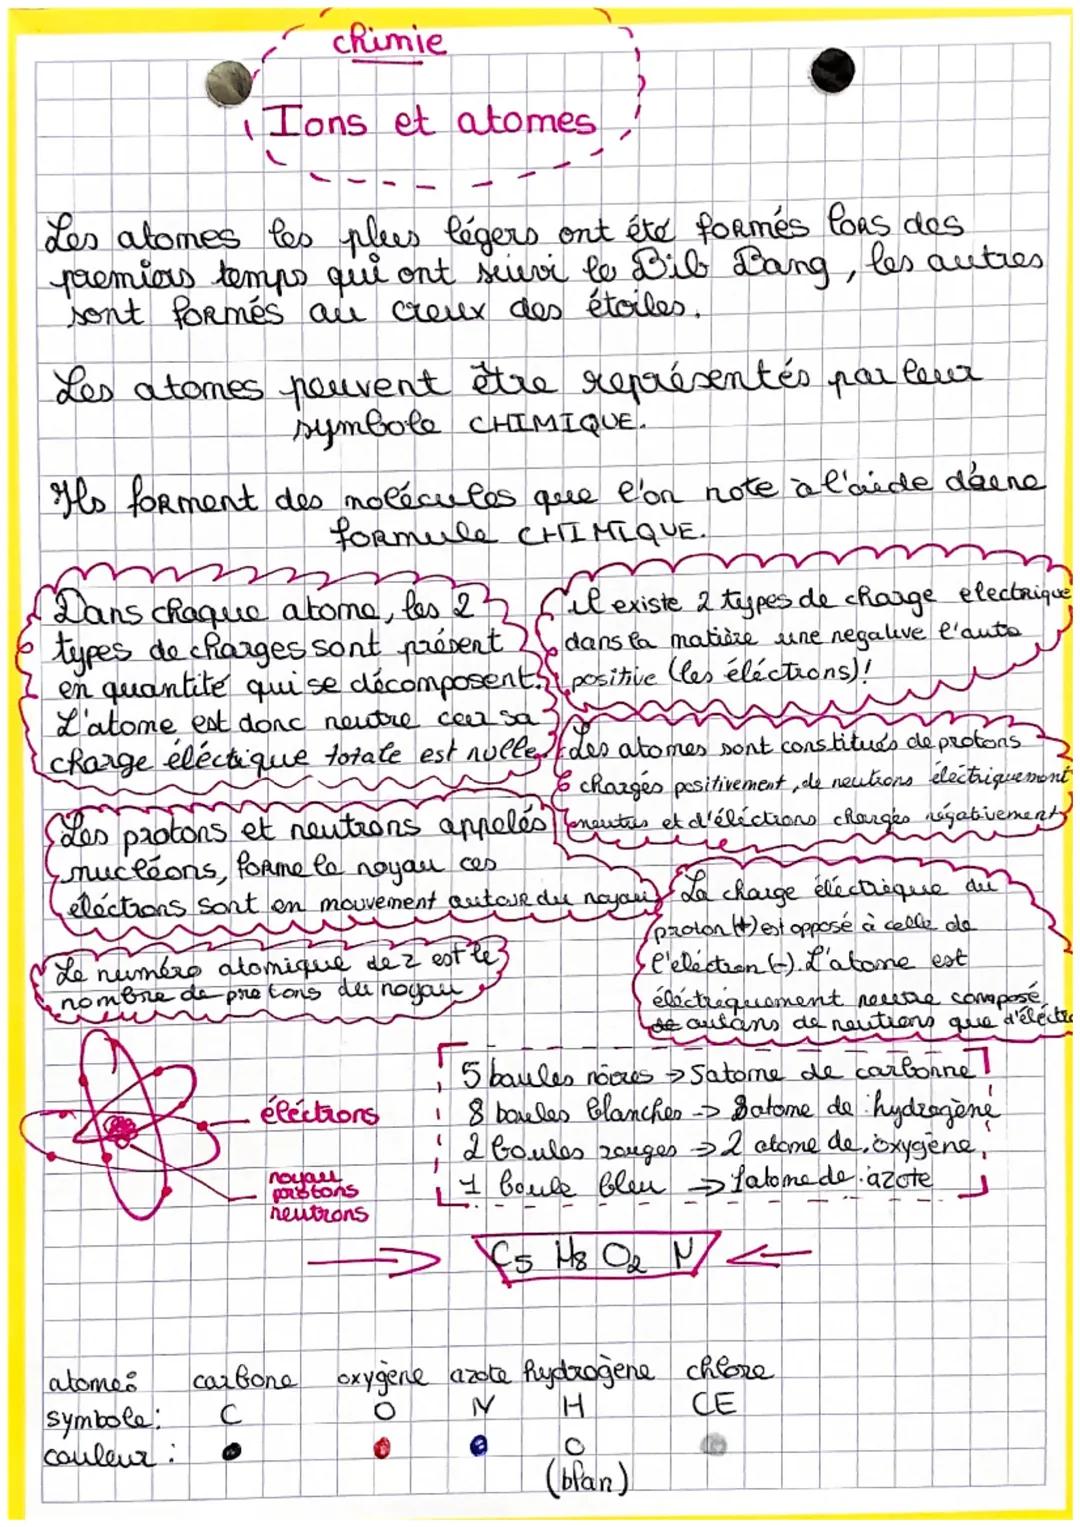 chimie
Ions et atomes
Les atomes les plus légers ont été formés lors des
premiers temps qui ont suivi le Bib Bang, les autres
sont formés au creux des étoiles.
Les atomes peuvent être représentés par leur
symbole CHIMIQUE.
Ils forment des molécules que l'on note à l'aide d'une
formule CHIMIQUE.
Dans chaque atome, les 2
types de charges sont présent
en quantité qui se décomposent.
L'atome est donc neutre car sa
charge éléctique totale est nulle
il existe 2 types de charge electrique
dans la matière une negative l'aute
positive (les éléctrons)!
Les atomes sont constitués de protons
chargés positivement, de neutrons électriquement
neutres et d'éléctrons chargés négativement
Les protons et neutrons appelés
nucléons, forme le noyau ces
eléctrons sont en mouvement autour du noyau
La charge éléctrique du
proton (+) est opposé à celle de
l'eléctron (-). L'atome est
éléctriquement neutre composé
de autans de neutrons que d'éléctro
Le numéro atomique de z est le
nombre de protons du noyau
éléctrons
noyau
protons
neutrons
5 boules noires → 5 atome de carbonne
8 boules blanches → 8 atome de hydrogène
2 boules rouges → 2 atome de oxygène,
1 boule bleu → 1 atome de azote
C5 H8 O2 N
atomes carbone oxygène azote hydrogène chlore
symbole: C O N H CE
couleur :
(blan)